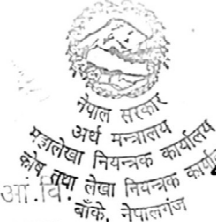 नेपाल सरकार
अर्थ मन्त्रालय
महालेखा नियन्त्रक कार्यालय
कोष तथा लेखा नियन्त्रक कार्या
आ.वि.
बाँके, नेपालगंज